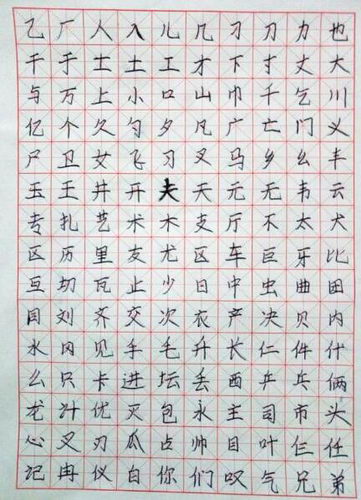 乙厂人入儿几刁刀力也
干于士土工才下寸丈大
与万上小口山巾千乞川
亿个久勺夕凡广亡门义
尸卫女飞习叉马乡幺丰
玉王井开夫天元无韦云
专扎艺术木支厅不太犬
区历里友尤区车巨牙比
互切瓦止少日中虫曲田
目刘齐交次衣产决贝内
水冈见手毛升长仁件什
么只卡进坛丢西乒兵俩
龙汁优灭包永主司市头
心叉刃瓜占帅目叶仨任
记冉仪白你们叹气兄弟